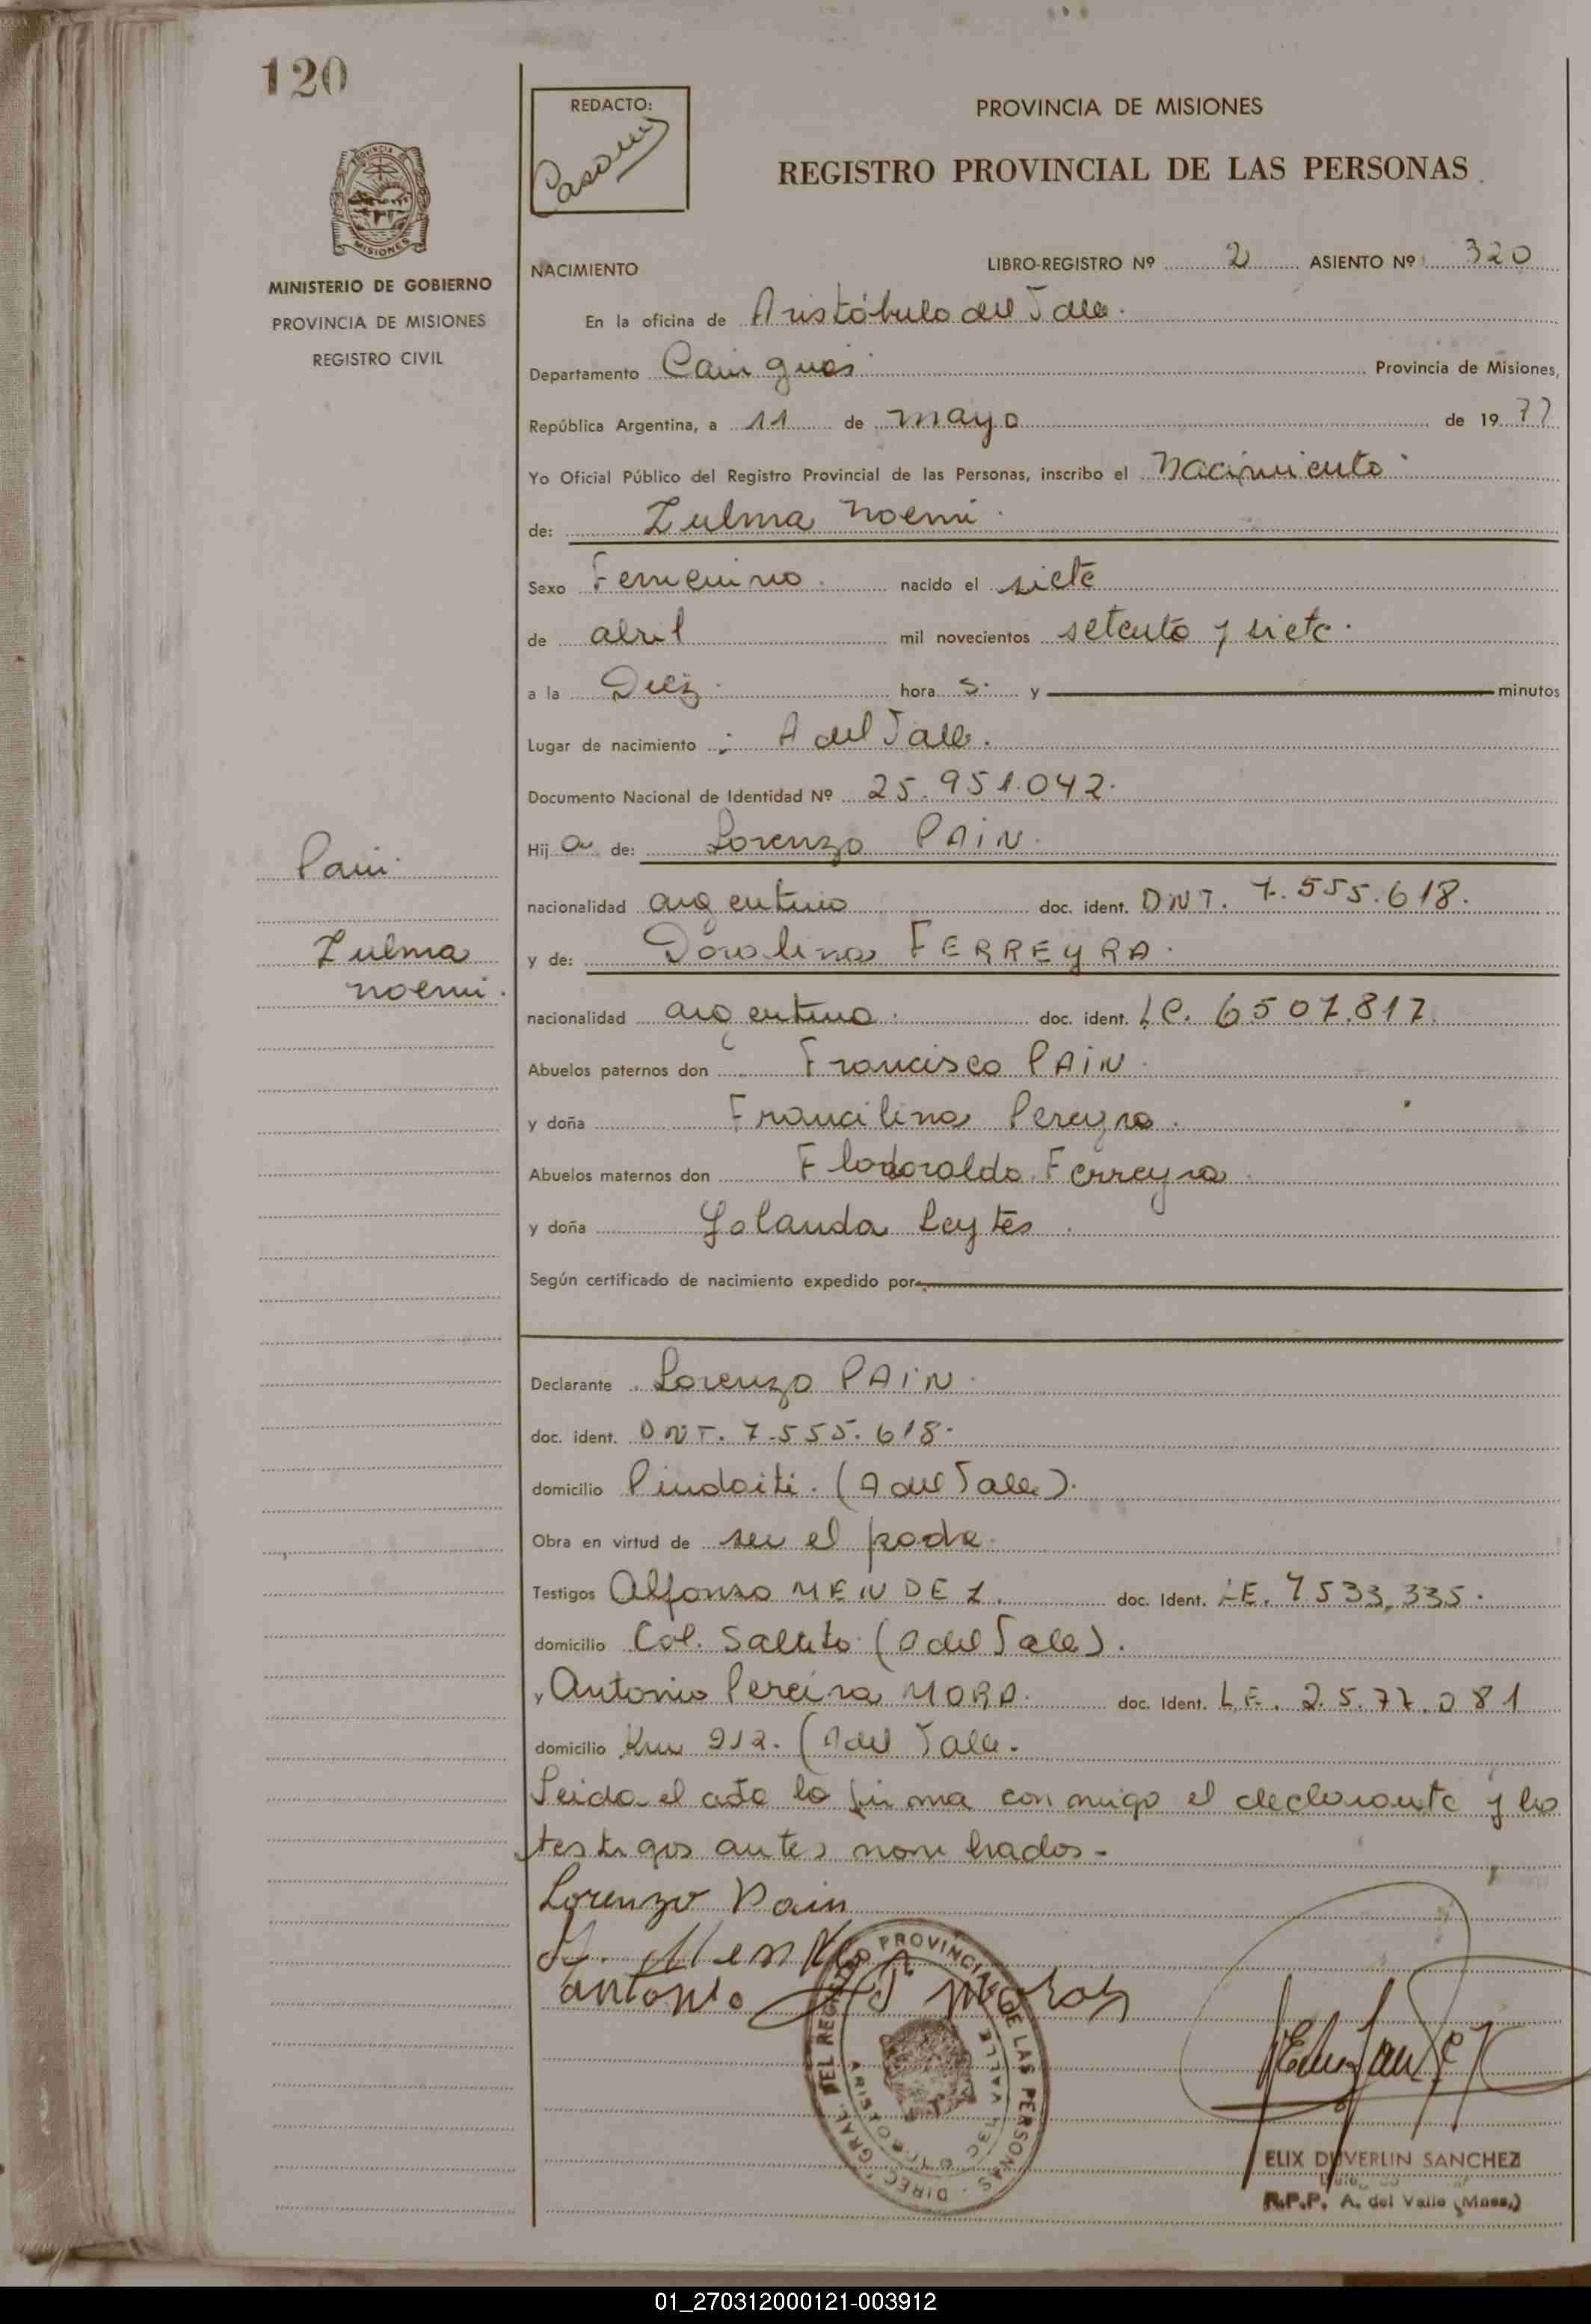 120
REDACTO:
PROVINCIA DE MISIONES
REGISTRO PROVINCIAL DE LAS PERSONAS
MISIONES
MINISTERIO DE GOBIERNO
PROVINCIA DE MISIONES
REGISTRO CIVIL
NACIMIENTO LIBRO-REGISTRO Nº 2 ASIENTO Nº 320
En la oficina de Aristóbulo del Valle.
Departamento Cainguás Provincia de Misiones,
República Argentina, a 11 de mayo de 1977
Yo Oficial Público del Registro Provincial de las Personas, inscribo el Nacimiento
de: Zulma Noemi.
Sexo Femenino. nacido el siete
de abril mil novecientos setenta y siete.
a la Diez. hora s. y minutos
Lugar de nacimiento: A del Valle.
Documento Nacional de Identidad Nº 25.951.042.
Hij a de: Lorenzo PAIN.
nacionalidad argentino doc. ident. DNT. 7.555.618.
y de: Dorolina FERREYRA.
nacionalidad argentina. doc. ident. LC. 6507.817.
Abuelos paternos don Francisco PAIN.
y doña Francilina Pereyra.
Abuelos maternos don Flodoraldo Ferreyra.
y doña Yolanda Leytes.
Según certificado de nacimiento expedido por
Pain.
Zulma
Noemi.
Declarante Lorenzo PAIN.
doc. ident. DNT. 7.555.618.
domicilio Pindaiti. (A del Valle).
Obra en virtud de ser el padre.
Testigos Alfonso MENDEZ. doc. Ident. LE. 7533,335.
domicilio Col. Saltito (A del Valle).
y Antonio Pereira MORA. doc. Ident. L.E. 2.5.77.081
domicilio Km 212. (A del Valle.
Leida el acta la firma conmigo el declarante y los
testigos antes nombrados.-
Lorenzo Pain
antonio
DIREC. GRAL. DEL REGISTRO PROVINCIAL DE LAS PERSONAS
ARISTOBULO DEL VALLE
ELIX DUVERLIN SANCHEZ
R.P.P. A. del Valle (Mnes.)
01_270312000121-003912